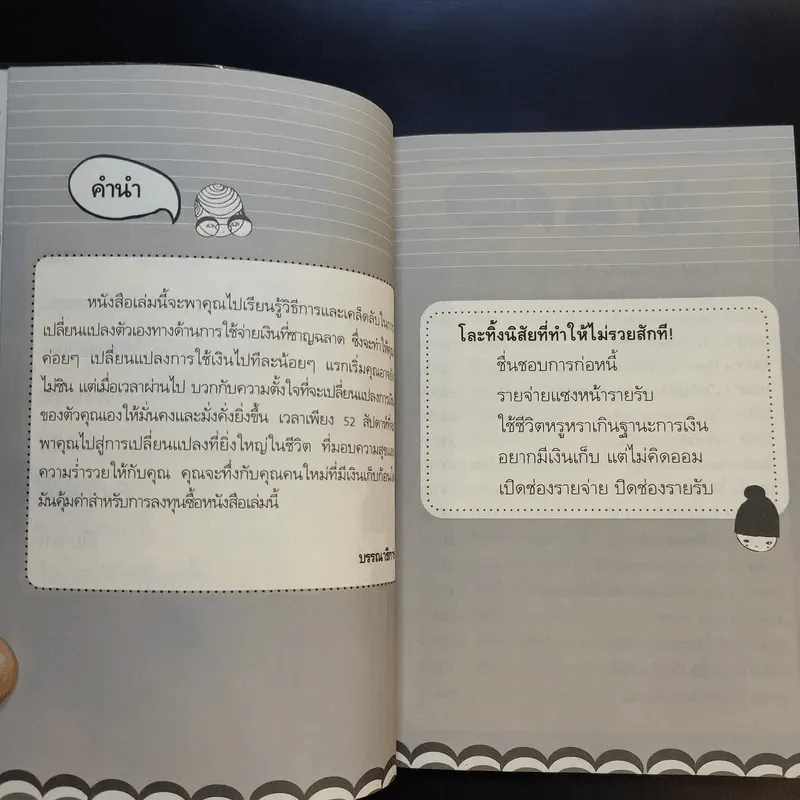 คำนำ
หนังสือเล่มนี้จะพาคุณไปเรียนรู้วิธีการและเคล็ดลับในการ
เปลี่ยนแปลงตัวเองทางด้านการใช้จ่ายเงินที่ชาญฉลาด ซึ่งจะทำให้คุณ
ค่อยๆ เปลี่ยนแปลงการใช้เงินไปทีละน้อยๆ แรกเริ่มคุณอาจ
ไม่ชิน แต่เมื่อเวลาผ่านไป บวกกับความตั้งใจที่จะเปลี่ยนแปลงการเงิน
ของตัวคุณเองให้มั่นคงและมั่งคั่งยิ่งขึ้น เวลาเพียง 52 สัปดาห์ที่จะ
พาคุณไปสู่การเปลี่ยนแปลงที่ยิ่งใหญ่ในชีวิต ที่มอบความสุขและ
ความร่ำรวยให้กับคุณ คุณจะทึ่งกับคุณคนใหม่ที่มีเงินเก็บก้อน
มันคุ้มค่าสำหรับการลงทุนซื้อหนังสือเล่มนี้
บรรณาธิการ
โละทิ้งนิสัยที่ทำให้ไม่รวยสักที!
ชื่นชอบการก่อหนี้
รายจ่ายแซงหน้ารายรับ
ใช้ชีวิตหรูหราเกินฐานะการเงิน
อยากมีเงินเก็บ แต่ไม่คิดออม
เปิดช่องรายจ่าย ปิดช่องรายรับ